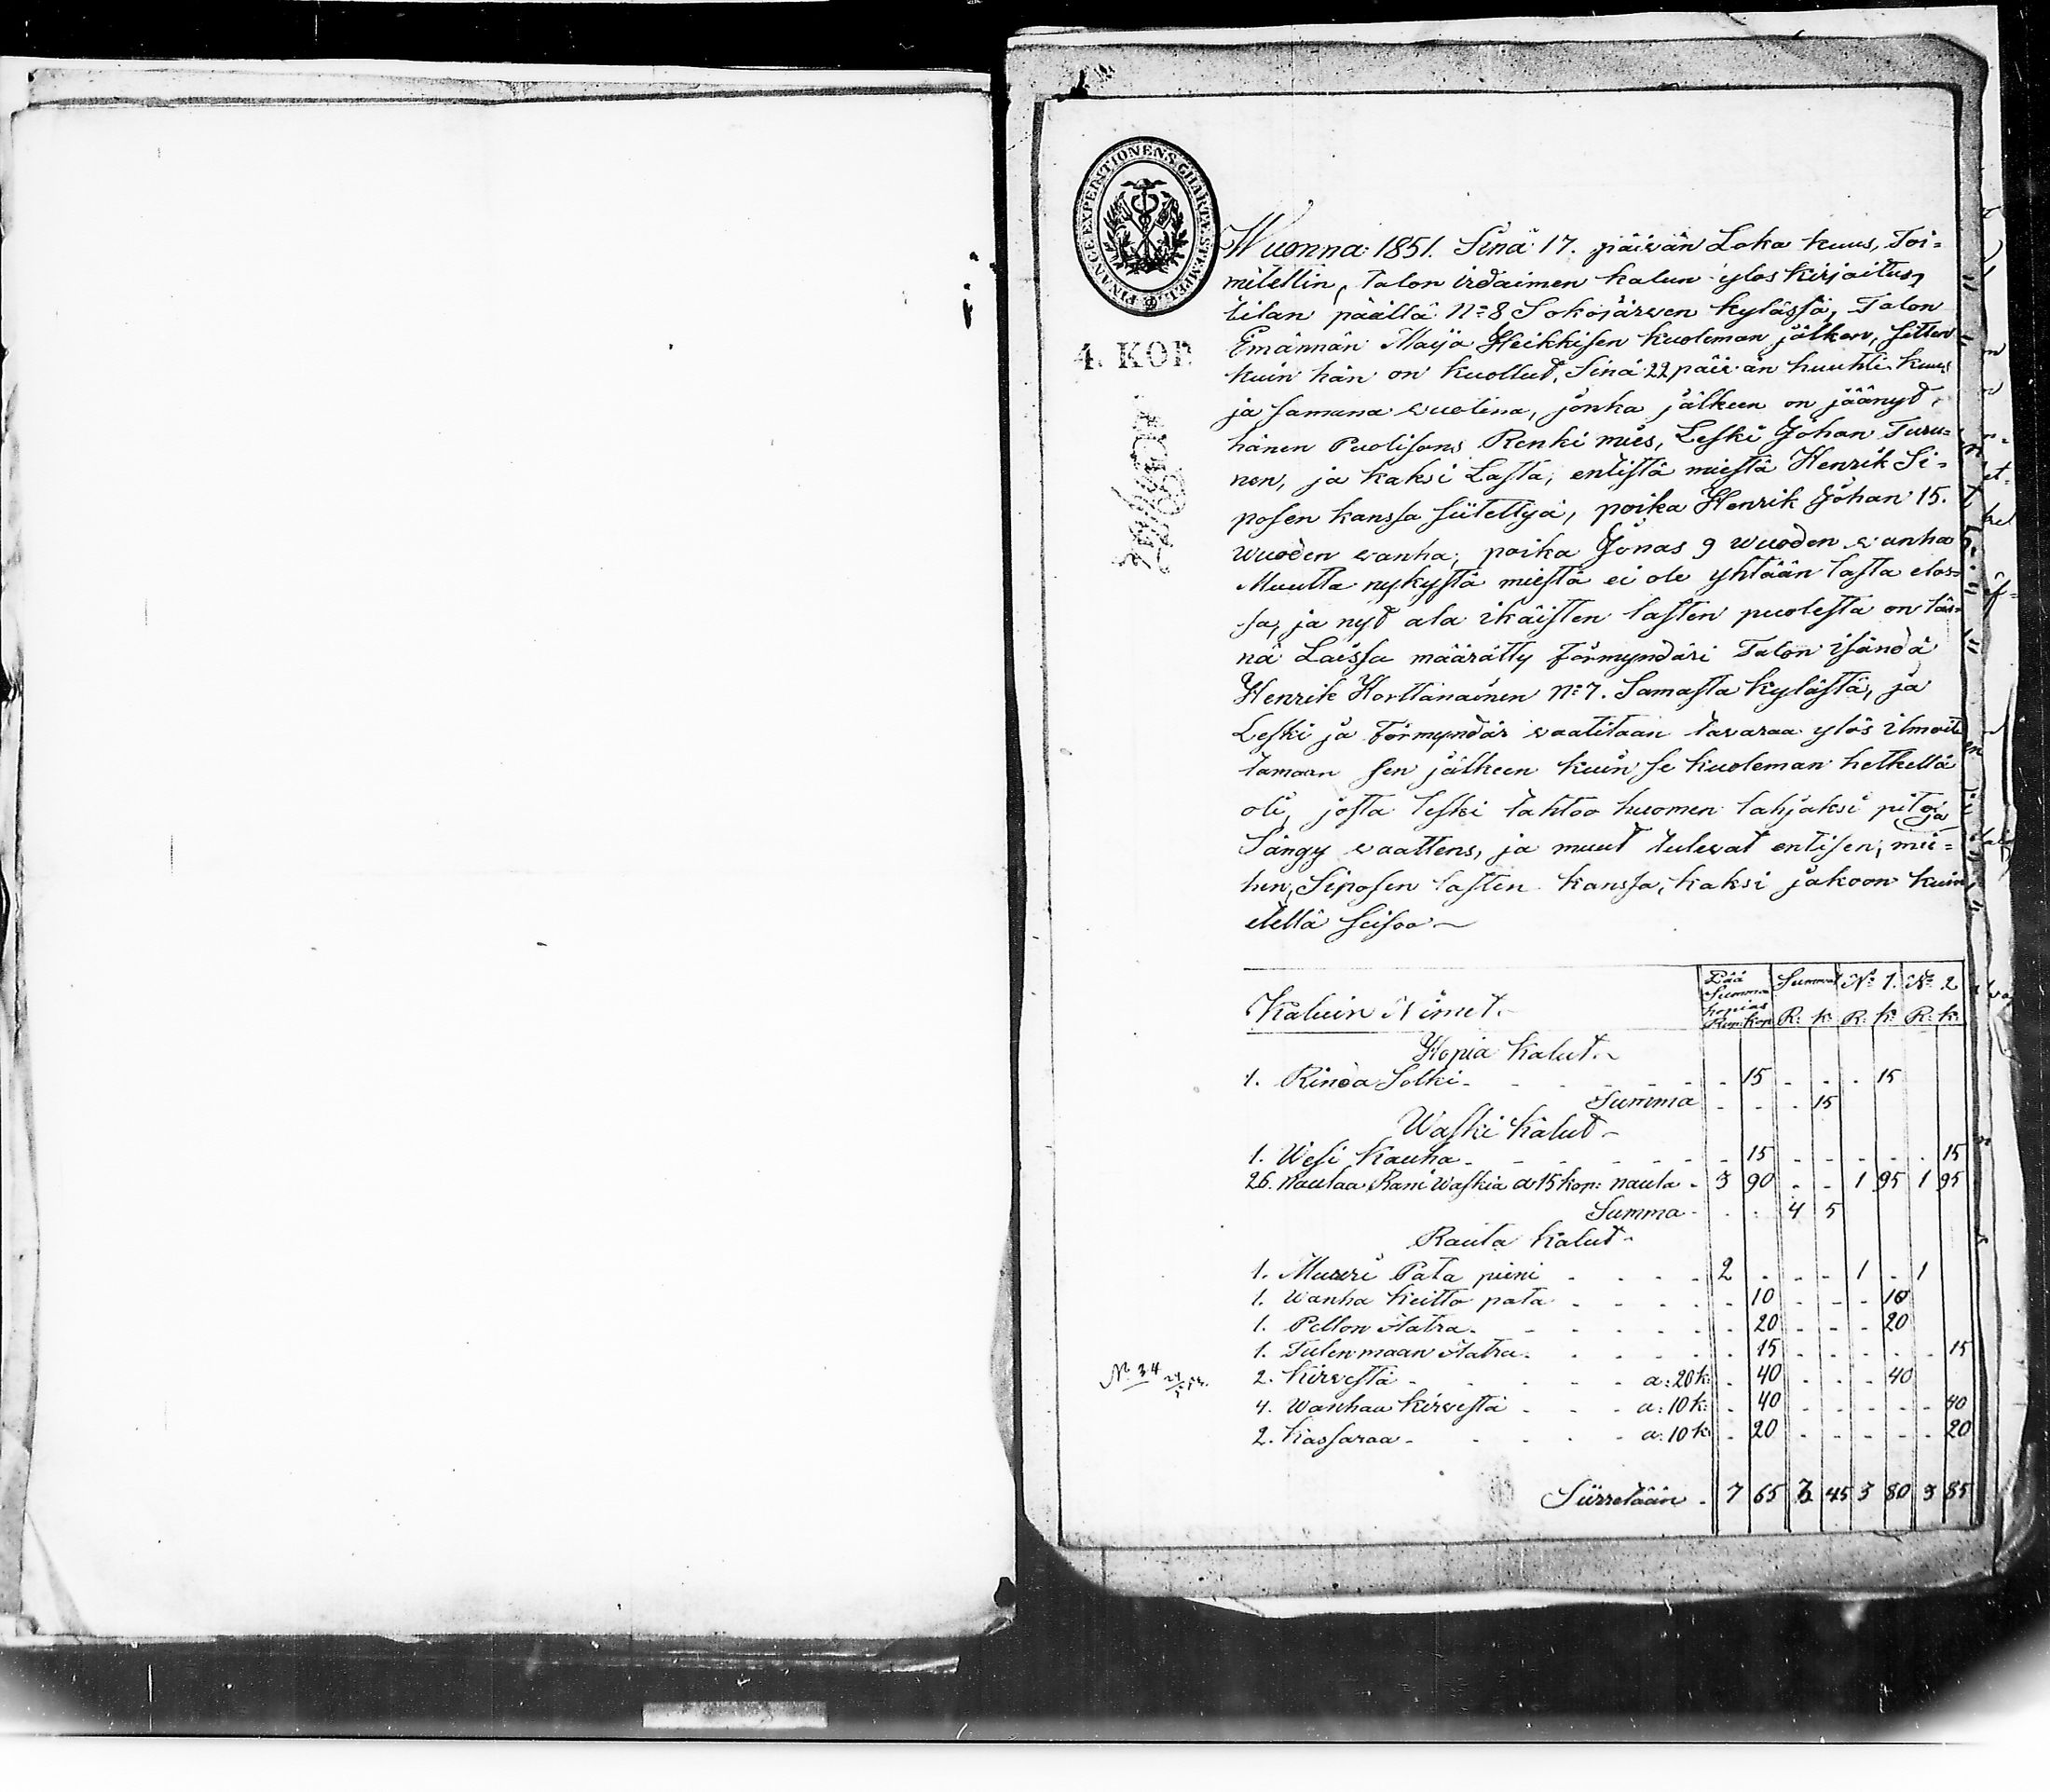 FINANCE EXPEDITIONENS CHARTÆ STEMPEL
4. KOP.
Wuonna 1851. Sinä 17. päivän Loka kuus, Toi=
mitettin, talon irdaimen kalun ylös kirjoitus,
tilan päällä N:8 Sokojärwen kylässä, Talon
Emännän Maija Heikkisen kuoleman jälken, sitten
kuin hän on kuollut, Sinä 22 päivän huuhti kuus
ja samana wuotina, jonka jälkeen on jäänyd,
hänen Puolisons Renki mies, Leski Johan Turu=
nen, ja kaksi Lasta, entistä miestä Henrik Si=
posen kanssa siitettyä, poika Henrik Johan 15.
wuoden wanha, poika Jonas 9 wuoden wanha
Muutta nykystä miestä ei ole yhtään lasta elos=
sa, ja nyd ala ikäisten lasten puolesta on läs=
nä Laissa määrätty förmyndäri Talon isändä
Henrik Korttanainen N:7. Samasta kylästä, ja
Leski ja förmyndär waatitaan tawaraa ylös ilmoit
tamaan sen jälkeen kuin se kuoleman hetkellä
oli, josta leski tahtoo huomen lahjaksi pito ja
Sängy waattens, ja muut tulewat entisen, mie=
hen, Siposen lasten kanssa, kaksi jakoon kuin
edellä seisoo
Kaluin Nimet. Pää Summa hopias Rup: Kop Summat R: k: N: 1. R: k: N: 2 R: k:
Hopia Kalut.
1. Rinda Solki - 15 - - - 15
Summa - - - 15
Waski Kalud
1. Wesi Kauha - 15 - - - - - 15
26. naulaa Rani Waskia a 15 kop: naula - 3 90 - - 1 95 1 95
Summa - - - 4 5
Rauta Kalud
1. Muuri Pata pieni - 2 - - - 1 - 1
1. Wanha Keitto pata - 10 - - - 10
1. Pellon Aatra - 20 - - - 20
1. Tulen maan Aatra - 15 - - - - - 15
2. Kirwestä - a: 20 k: - 40 - - - 40
N: 34
4. Wanhaa kirwestä - a: 10 k: - 40 - - - - - 40
2. Kassaraa - a: 10 k: - 20 - - - - - 20
Siirretään - 7 65 3 45 3 80 3 85